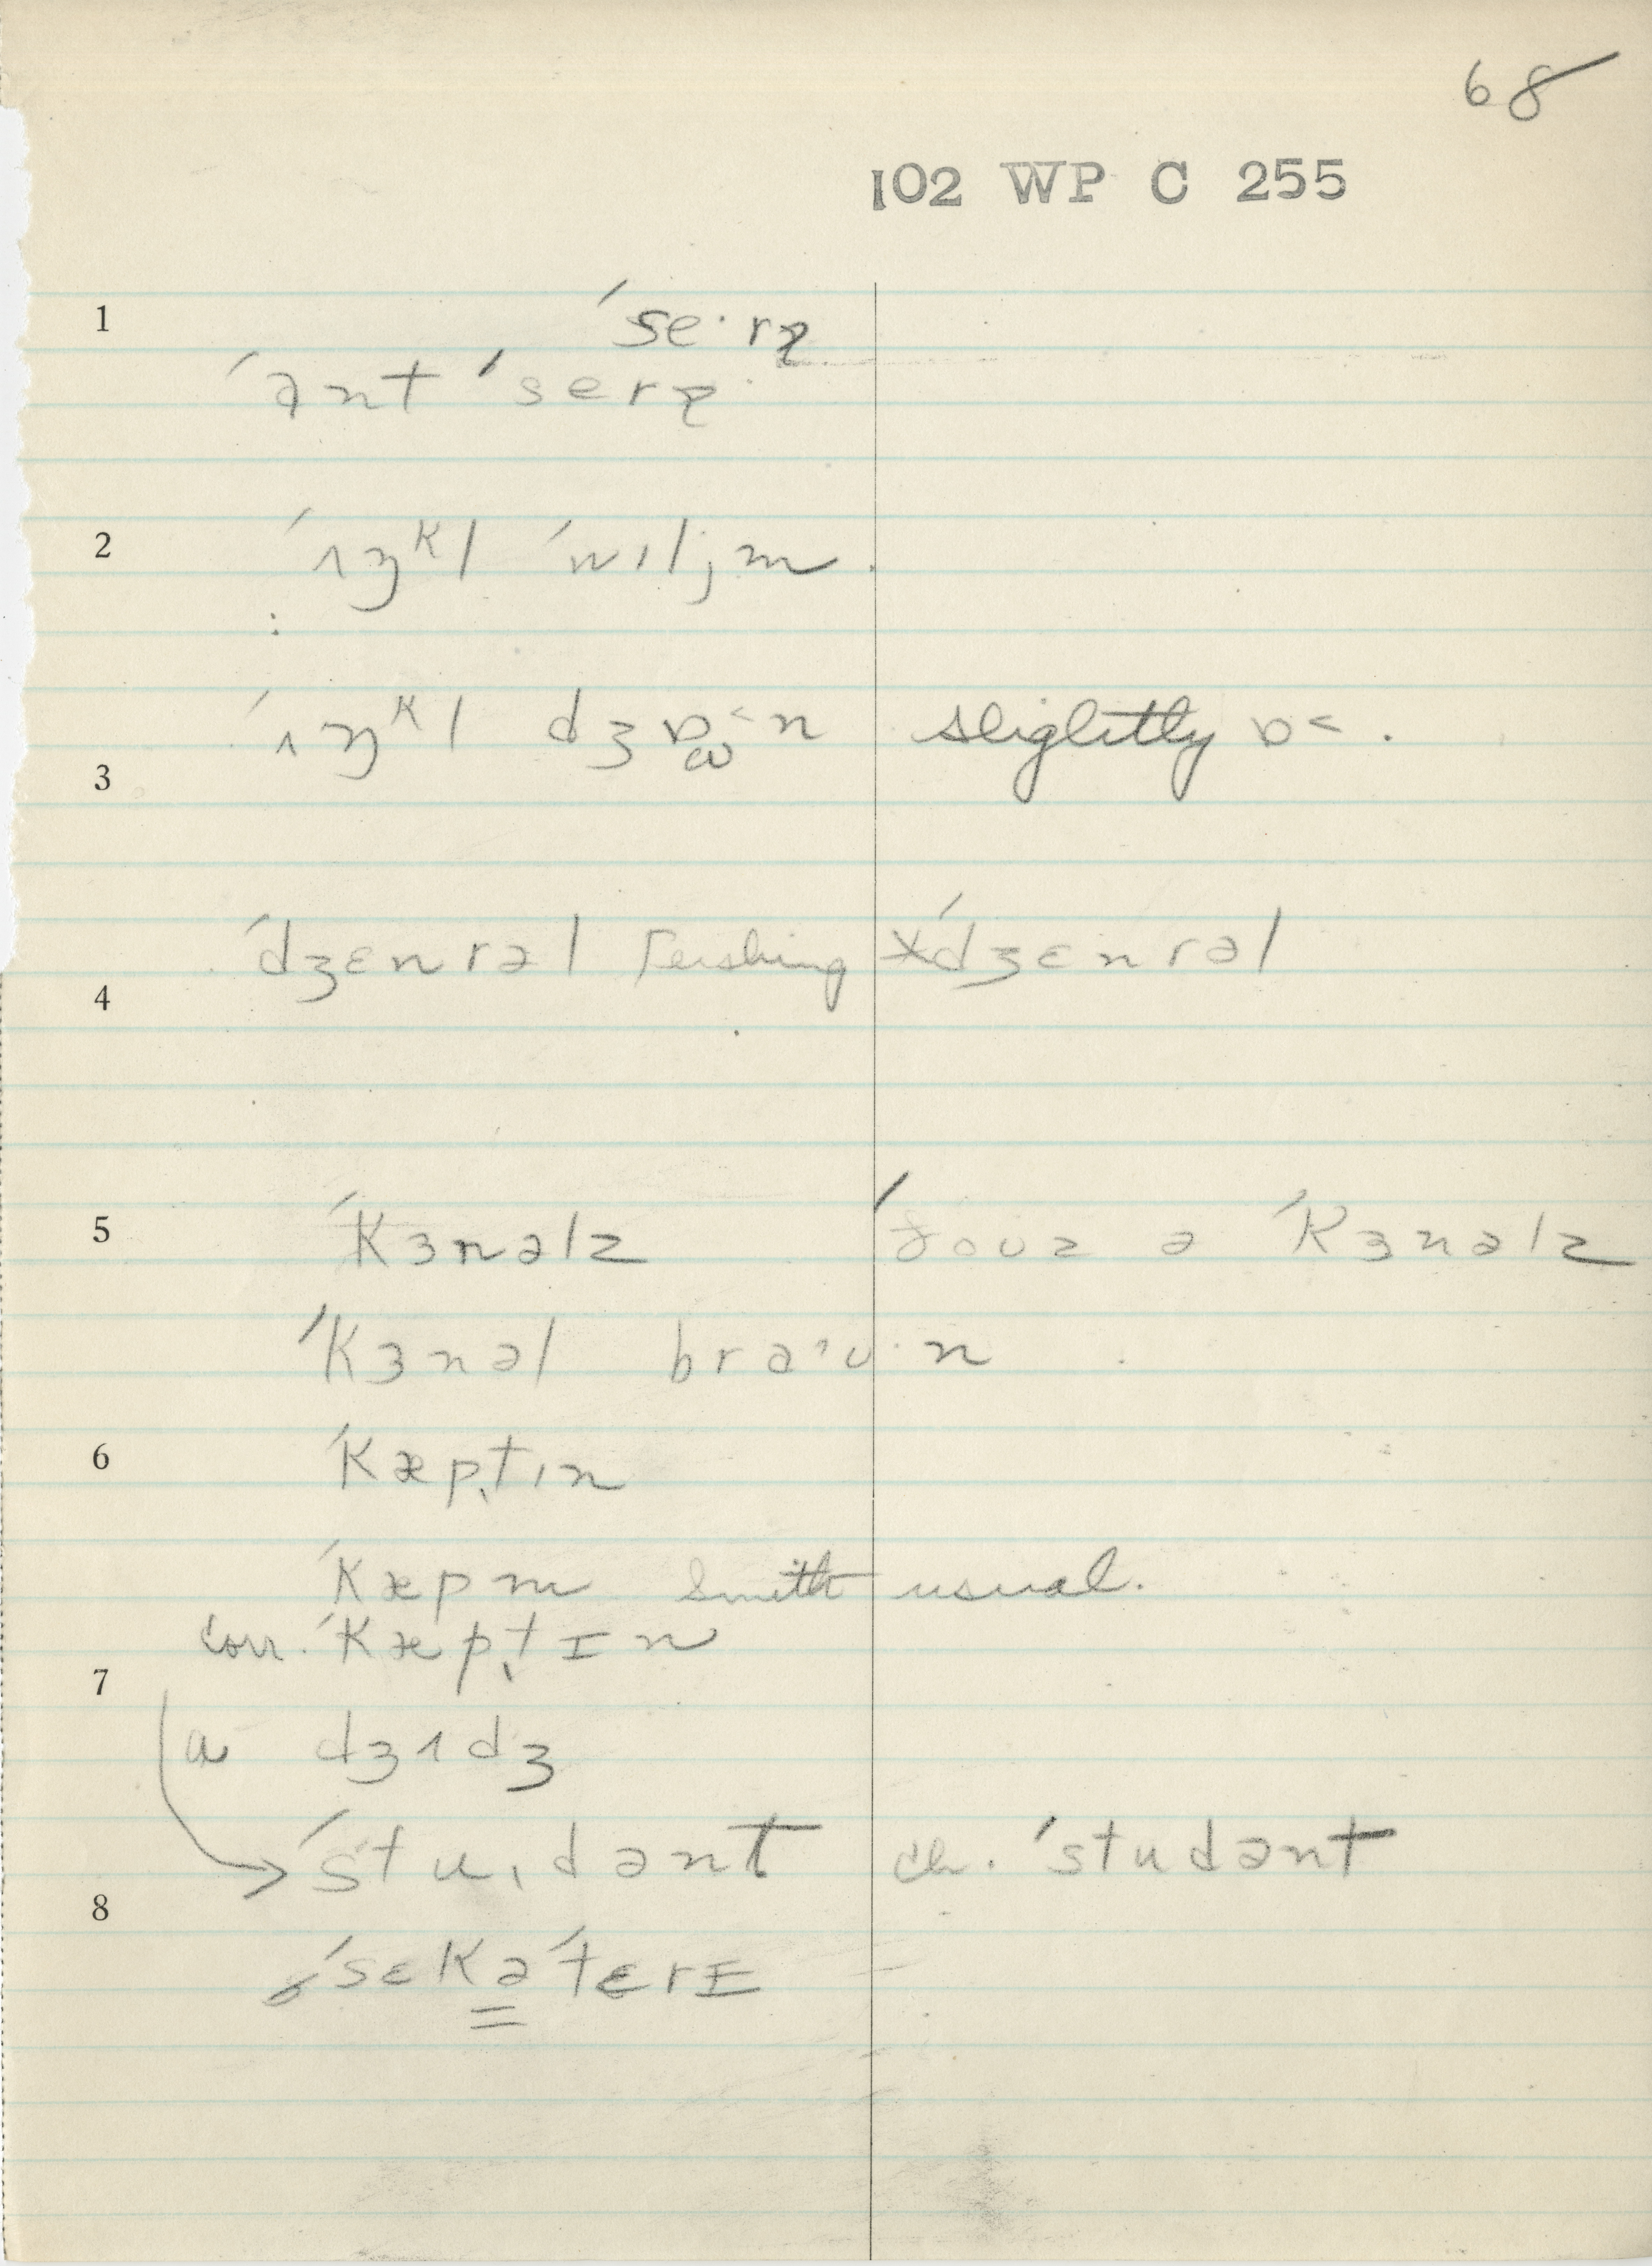 68
102 WP C 255
1 ˈse·rə
ˈant ˈserə
2 ˈʌŋᵏl ˈwɪljm.
ˈʌŋᵏl dʒɒ˂n slightly ɒ˂.
3
ˈdʒɛnrəl Pershing × ˈdʒɛnrəl
4
5 ˈkɜnəlz ˈðoʊz ə ˈkɜnəlz
ˈkɜnəl braˑʊ·n
6 ˈkæptɪn
ˈkæpm Smith usual.
corr. ˈkæptɪn
7
a dʒʌdʒ
ˈstudənt ch. ˈstudənt
8
ˈsɛkəˈtɛrɪ